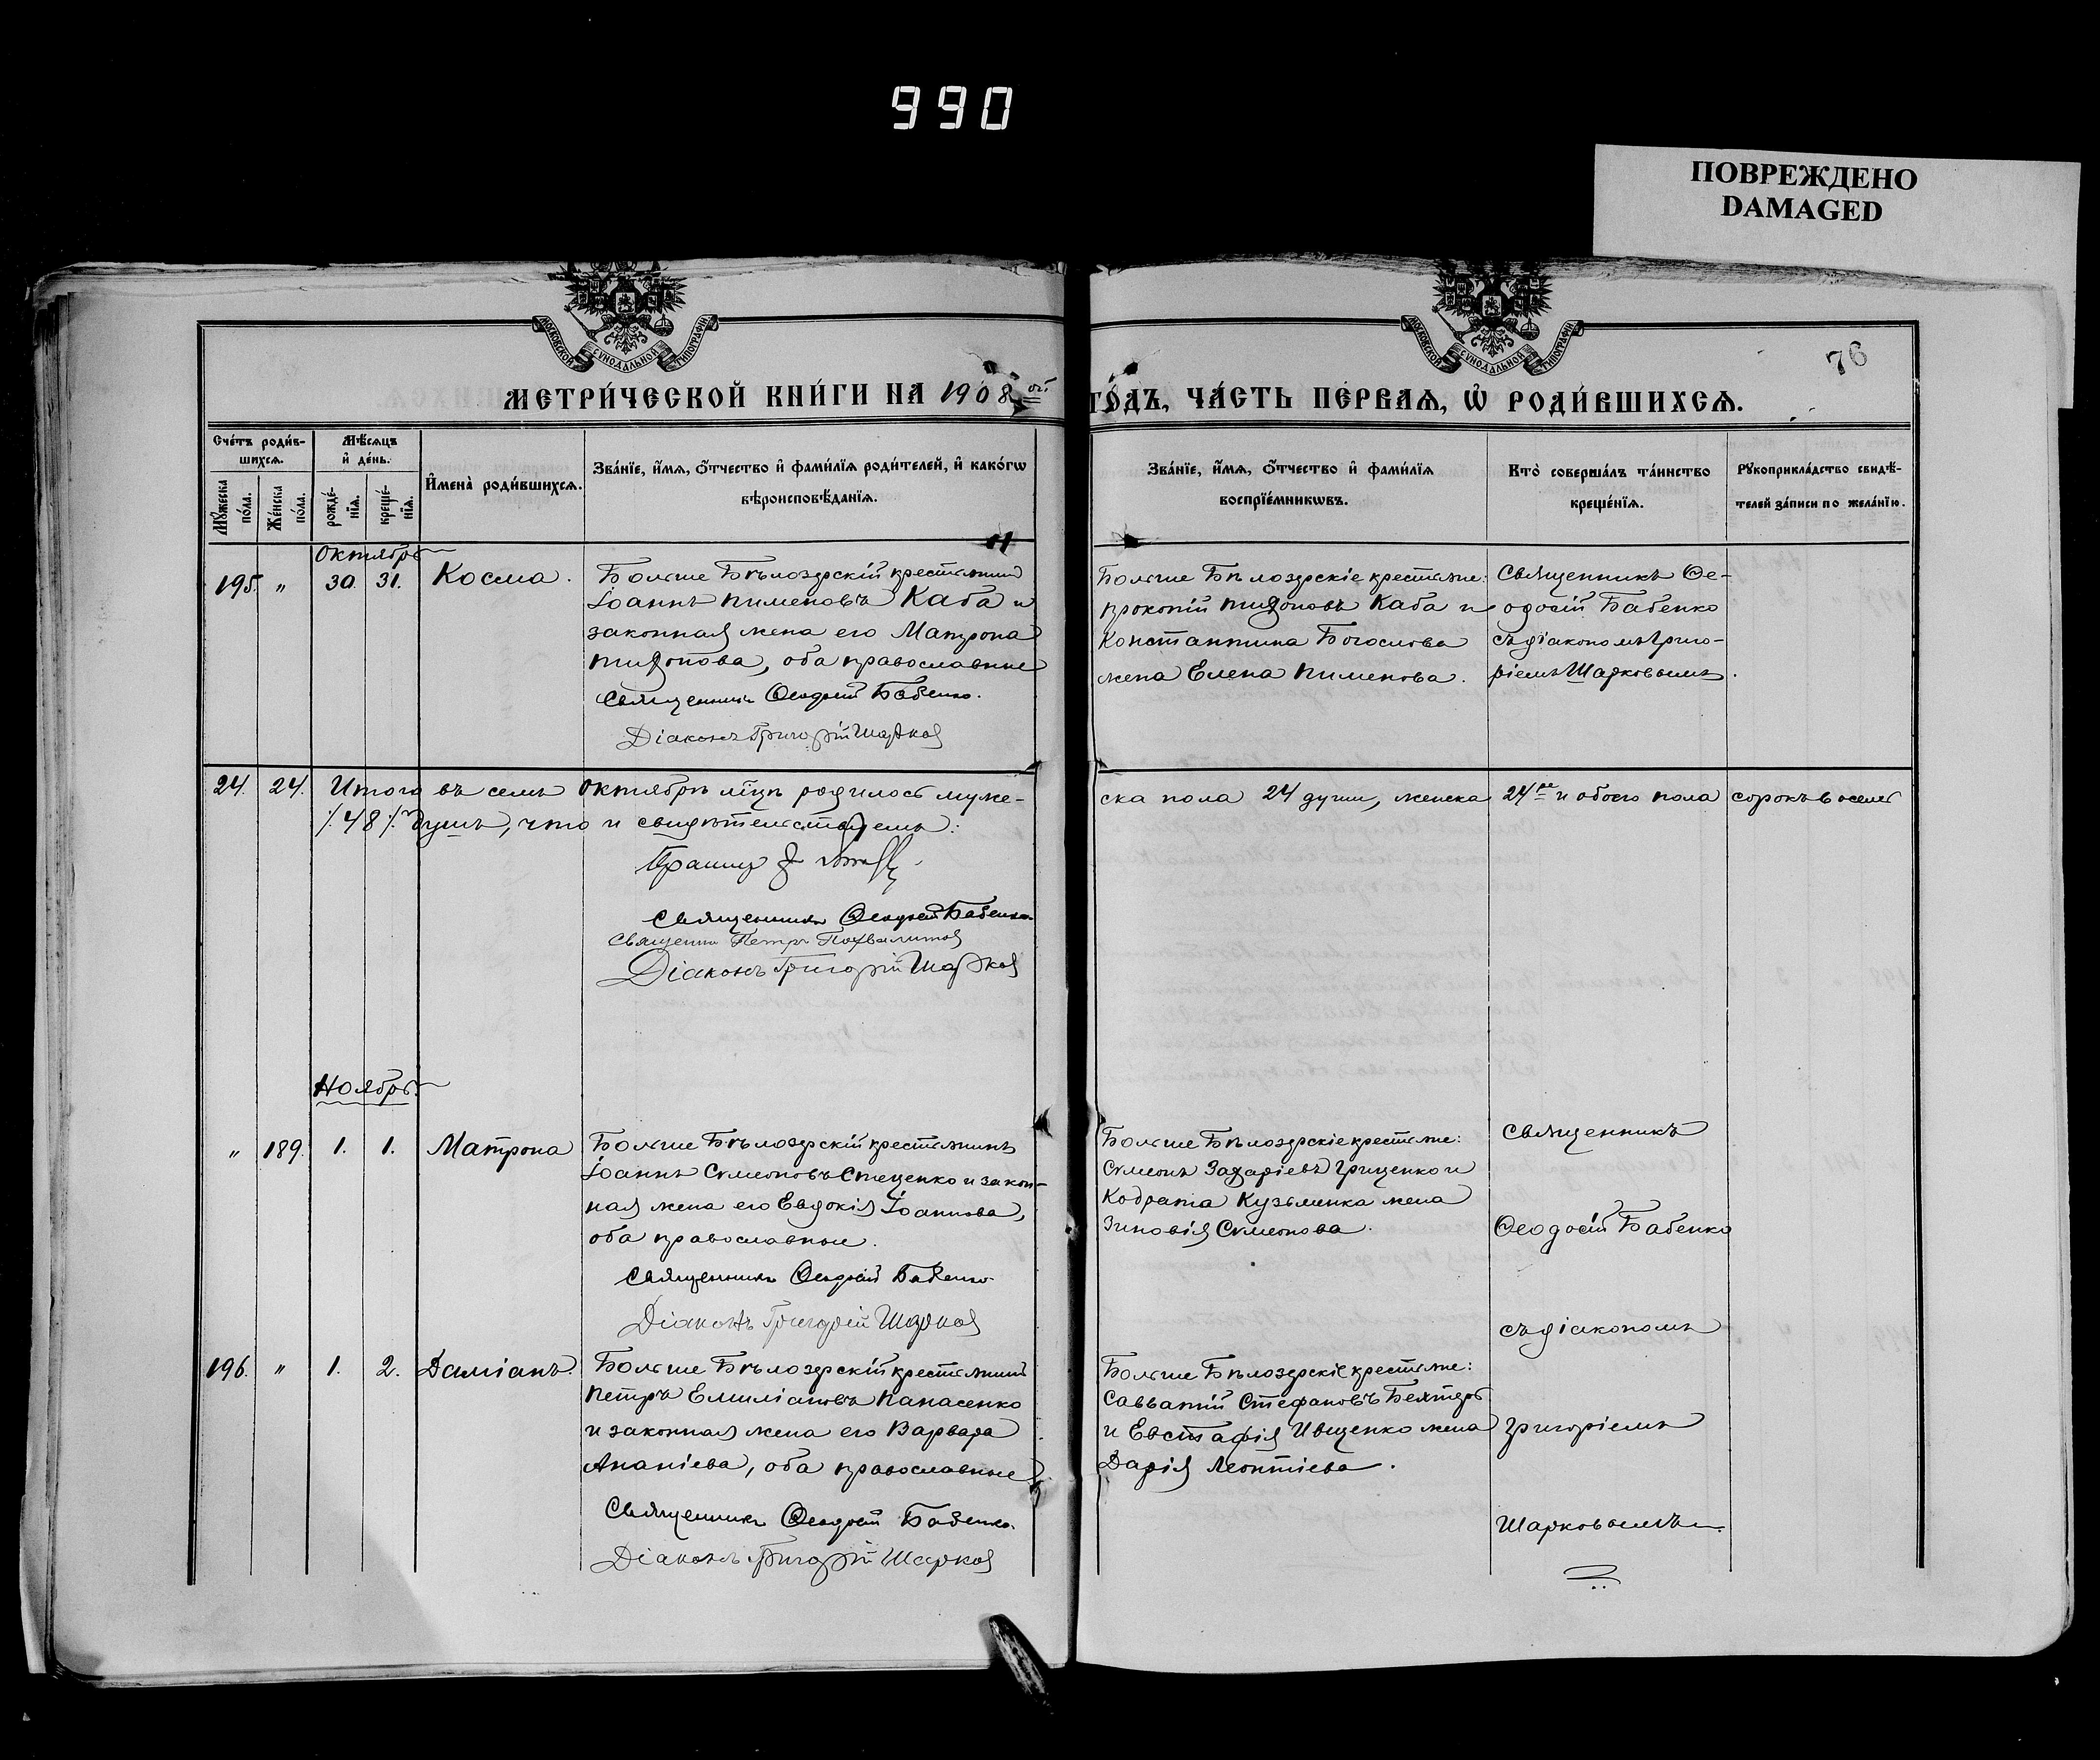 990
ПОВРЕЖДЕНО
DAMAGED
МОСКОВСКОЙ СУНОДАЛЬНОЙ ТИПОГРАФІИ
МОСКОВСКОЙ СУНОДАЛЬНОЙ ТИПОГРАФІИ
76
МЕТРИ́ЧЕСКОЙ КНИ́ГИ НА 1908 ой
ГО́ДЪ, ЧА́СТЬ ПЕ́РВАѦ, Ѡ҆ РОДИ́ВШИХСѦ.
Сче́тъ роди́в-
шихсѧ.
Мѣ́сѧцъ
и҆ де́нь.
Мꙋ́жеска по́ла.
Же́нска по́ла.
рожде́-нїѧ.
креще́-нїѧ.
И҆мена̀ роди́вшихсѧ.
Зва́нїе, и҆́мѧ, ѻ҆́тчество и҆ фами́лїѧ роди́телей, и҆ како́гѡ
вѣроисповѣ́данїѧ.
Зва́нїе, и҆́мѧ, ѻ҆́тчество и҆ фами́лїѧ
воспрїе́мникѡвъ.
Кто̀ соверша́лъ та́инство
креще́нїѧ.
Рꙋкоприкла́дство свидѣ́-
телей за́писи по жела́нїю.
Октябрь
195. " 30. 31. Косма.
Больше Бѣлозерскій крестьянинъ
Іоаннъ Пименовъ Каба и
законная жена его Матрона
Тихонова, оба православные
Священникъ Ѳеодосій Бабенко.
Діаконъ Григорій Шарков
Больше Бѣлозерскіе крестьяне:
Прокопій Тихоновъ Каба и
Константина Богослова
жена Елена Пименова.
Священникъ Ѳе-
одосій Бабенко
съ діакономъ Григо-
ріемъ Шарковымъ.
24. 24. Итого въ семъ Октябрѣ м̃цѣ родилось муже-
ска пола 24 души, женска 24ре и обоего пола сорокъ восемь
/.48/. душъ, что и свидѣтельствуемъ:
Священникъ Ѳеодосій Бабенко
Священник Петръ Похвалитов
Діаконъ Григорій Шарков
Ноябрь.
" 189. 1. 1. Матрона
Больше Бѣлозерскій крестьянинъ
Іоаннъ Сѵмеоновъ Стеценко и закон-
ная жена его Евдокія Іоаннова,
оба православные.
Священникъ Ѳеодосій Бабенко
Діаконъ Григорій Шарков
Больше Бѣлозерскіе крестьяне:
Сѵмеонъ Захаріевъ Гриценко и
Кодрата Кузьменка жена
Зиновія Сѵмеонова.
Священникъ
Ѳеодосій Бабенко
съ діакономъ
Григоріемъ
Шарковымъ.
196. " 1. 2. Даміанъ.
Больше Бѣлозерскій крестьянинъ
Петръ Емиліановъ Панасенко
и законная жена его Варвара
Ананіева, оба православные.
Священникъ Ѳеодосій Бабенко.
Діаконъ Григорій Шарков
Больше Бѣлозерскіе крестьяне:
Савватій Стефановъ Бехтеръ
и Евстафія Ивщенко жена
Дарія Леонтіева.